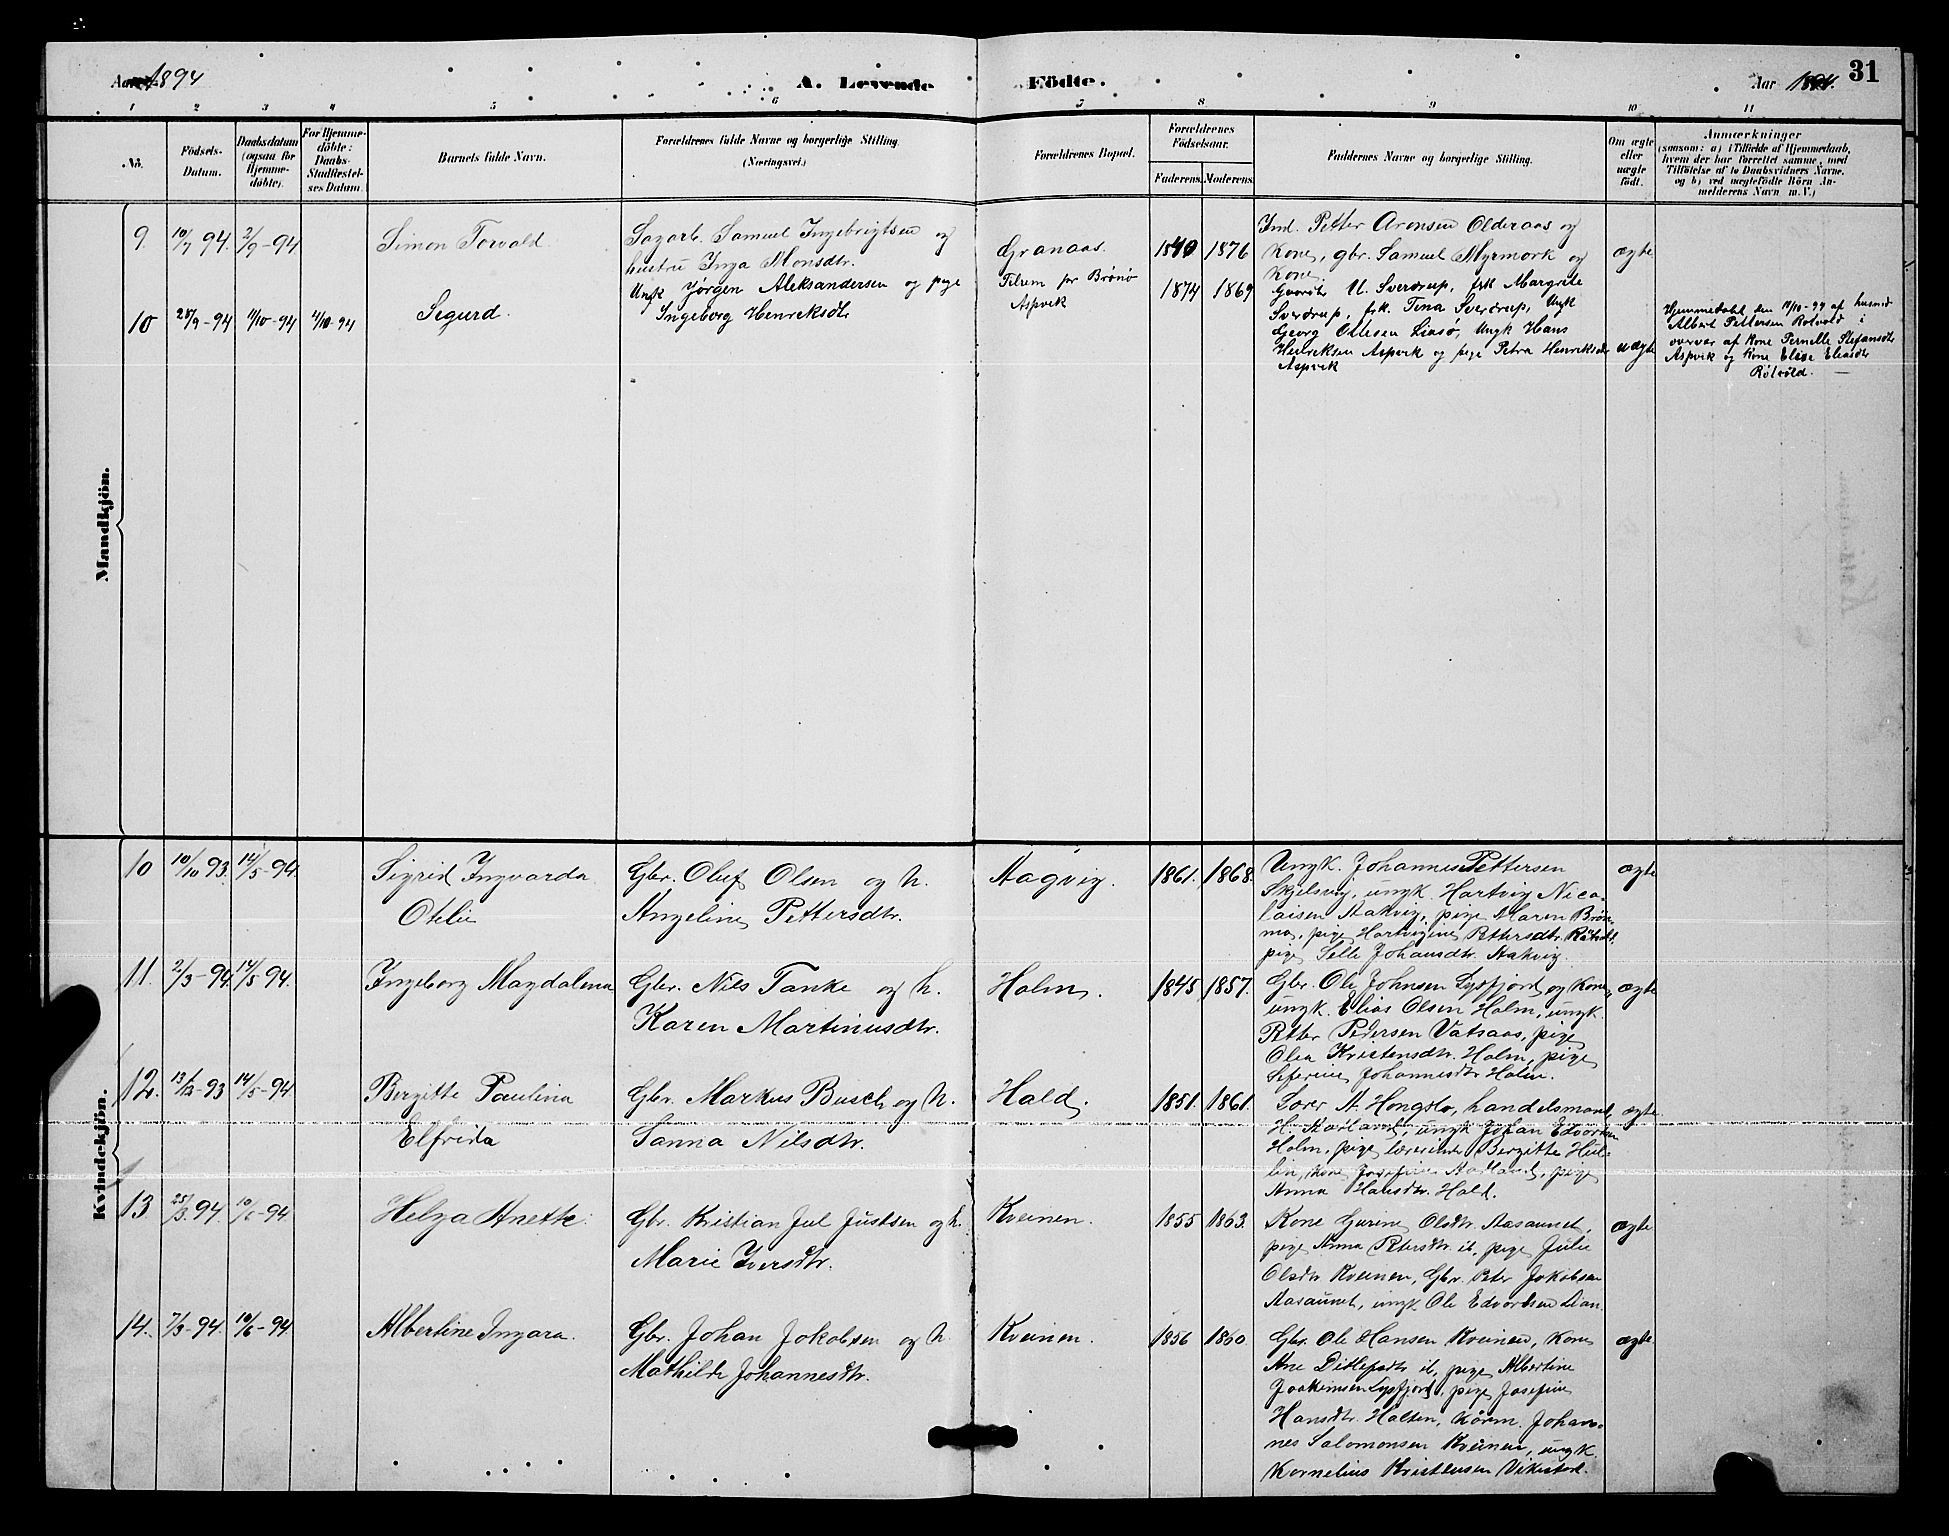 Aar 1894
A. Levende Födte.
Aar 1894.
31
1 2 3 4 5 6 7 8 9 10 11
No.
Födsels-Datum.
Daabsdatum (ogsaa for Hjemme-döbte).
For Hjemme-döbte: Daabs-Stadfæstel-ses Datum.
Barnets fulde Navn.
Forældrenes fulde Navne og borgerlige Stilling (Næringsvei.)
Forældrenes Bopæl.
Forældrenes Födselsaar.
Faderens. Moderens.
Faddernes Navne og borgerlige Stilling.
Om ægte eller uægte födt.
Anmærkninger
(saasom: a) i Tilfælde af Hjemmedaab,
hvem der har forrettet samme, med
Tilföielse af to Daabsvidners Navne,
og b) ved uægtefödte Börn An-
melderens Navn m. V.)
Mandkjön.
9. 10/7 94. 2/9-94 Simon Torvald
Sagarb. Samuel Ingebrigtsen og
hustru Inga Monsdtr.
Granaas. 1840 1876
Ind. Petter Aronsen Olderaas og
Kone, gbr. Samuel Myrmork og
Kone.
ægte
10 28/9-94 11/10-94 11/10-94 Segurd.
Ungk Jørgen Aleksandersen og pige
Ingeborg Henriksdtr
Tilrem pr Brønø
Aspvik
1874 1869
U. Sverdrup, frk Margrete
Sverdrup, frk. Tina Sverdrup, Ungk
Georg Ottesen Linsø, Ungk Hans
Henriksen Aspvik og pige Petra Henriksdtr
Aspvik
uægte
Hjemmedøbt den 11/10-94 af husmd
Albert Pettersen Rotvold i
overvær af Kone Pernelle Stefansdtr
Aspvik og Kone Elise Eliasdtr
Røtvold.
Kvindekjön.
10 10/10 93. 14/5-94 Sigrid Ingvarda
Otelie
Gbr. Oluf Olsen og h.
Angeline Pettersdtr.
Aagvig. 1861. 1868.
Ungk. Johannes Pettersen
Skjelsvig, ungk. Hartvig Nico-
laisen Aakvig, pige Maren Brøn-
mo, pige Hartvigine Pettersdtr. Røtvolt,
pige Selle Johansdtr. Aakvig.
ægte
11. 2/3-94. 14/5-94. Ingeborg Magdalena
Gbr. Nils Tanke og h.
Karen Martinusdtr.
Holm. 1845 1857.
Gbr. Ole Johnsen Lysfjord og Kone,
ungk. Elias Olsen Holm, ungk.
Petter Pedersen Vatsaas, pige
Olea Kristensdtr. Holm, pige
Seferine Johannesdtr Holm.
ægte
12. 13/12-93 14/5-94 Bergitte Paulina
Elfrida
Gbr. Markus Busch og h.
Sanna Nilsdtr.
Hald. 1851. 1861.
Lærer A. Hongslo, handelsmand
H. Aarland, ungk Johan Edvorsen
Holm, pige lærerinde Bergitte Hul-
lin, kone Josefine Aarland, pige
Anna Hansdtr. Hald.
ægte
13 25/3. 94. 10/6-94 Helga Anette.
Gbr. Kristian Jul Justsen og h.
Marie Iversdtr.
Kveinen. 1855 1863.
Kone Gurine Olsdtr. Aasaunet,
pige Anna Petersdtr. ib, pige Julie
Olsdtr Kveinen, Gbr. Peter Jokobsen
Aasaunet, ungk Ole Edvordsen Lian
ægte
14. 7/3-94. 10/6-94 Albertine Ingara.
Gbr. Johan Jokobsen og h.
Mathilde Johannesdtr.
Kveinen. 1856 1860.
Gbr. Ole Hansen Kveinen, Kone
Ane Ditlefsdtr ib, pige Albertine
Joakimsen Lysfjord, pige Josefine
Hansdtr. Holten, Körm. Johan-
nes Salomonsen Kveinen, ungk.
Kornelius Kristensen Vikestad.
ægte